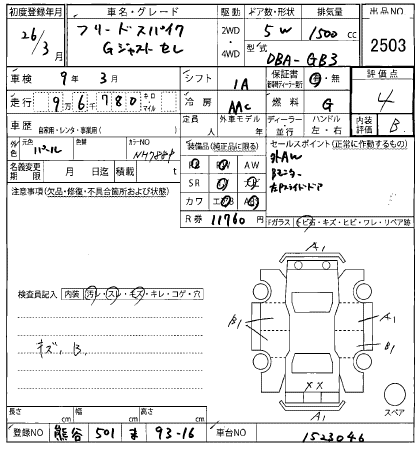 初度登録年月 車名・グレード 駆動 ドア数・形状 排気量 出品NO
26/3月 フリードスパイク Gジャストセレ 2WD・4WD 5W 1500cc 2503
型式 DBA-GB3
車検 9年3月 シフト IA 保証書 有・無 評価点
走行 9万6千780 キロ・マイル 冷房 AAC 燃料 G 4
車歴 自家用・レンタ・事業用( ) 定員 人 外車モデル 年 ディーラー・並行 ハンドル 左・右 内装評価 B
外色 元色 パール 色替 カラーNO NH788P 装備品(純正品に限る) セールスポイント(正常に作動するもの)
名義変更期限 月 日迄 積載 t PS PW 外AW
注意事項(欠品・修復・不具合箇所および状態) SR ナビ Bモニター
カワ エアB AB 左Pスライドドア
R券 11760円
Fガラス トビ石・キズ・ヒビ・ワレ・リペア跡
A1
検査員記入 内装 汚レ・スレ・キズ・キレ・コゲ・穴
B1 A1
キズ、B B1
XX
A1
スペア
長さ cm 幅 cm 高さ cm
登録NO 熊谷 501 ま 93-16 車台NO 1523046